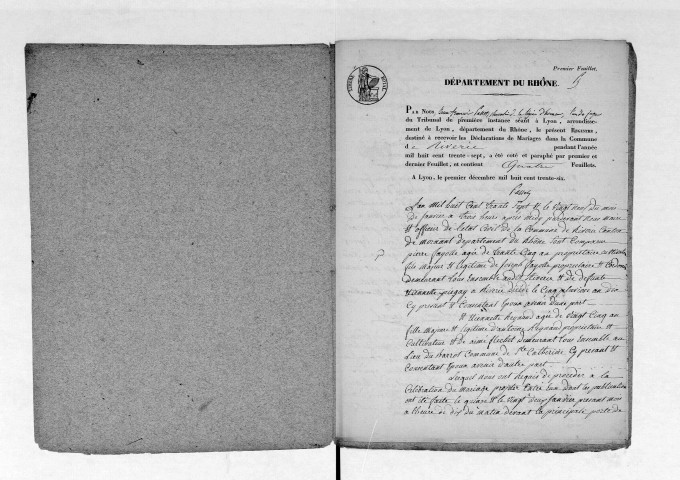 Premier Feuillet.
DÉPARTEMENT DU RHÔNE.
PAR NOUS,
du Tribunal de première instance séant à Lyon, arrondisse-
ment de Lyon, département du Rhône, le présent REGISTRE,
destiné à recevoir les Déclarations de Mariages dans la Commune
de Riverie pendant l'année
mil huit cent trente-sept, a été coté et paraphé par premier et
dernier Feuillet, et contient quatre Feuillets.
A Lyon, le premier décembre mil huit cent trente-six.
L'an mil huit cent trente sept et le vingt deux du mois
de janvier a trois heures après midy pardevant nous maire
et officier de l'état civil de la Commune de Riverie Canton
de mornant département du Rhône sont comparu
pierre fayolle agé de trente cinq ans propriétaire
fils majeur et légitime de joseph fayolle propriétaire et
demeurant tous ensemble audit Riverie et de defunte
a Riverie décédé le cinq
Cy présent et Consentant pour avenir d'une part
et agée de vingt cinq ans
fille majeure et légitime d'antoine propriétaire et
Cultivateur et de demeurant tous ensemble au
Lieu du Commune de Ste Catherine Cy présent et
Consentant pour avenir d'autre part
Lesquels nous ont requis de procéder à la
Célébration du mariage projeté entre eux dont les publications
ont été faites le quinze et le vingt deux janvier présent mois
a l'heure de dix du matin devant la principale porte de